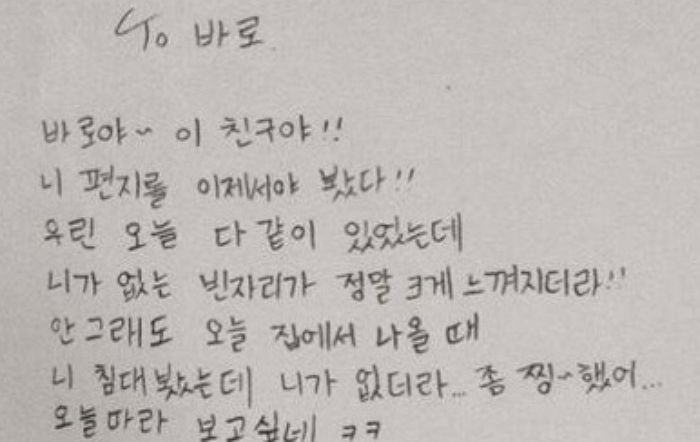 To 바로
바로야~ 이 친구야!!
니 편지를 이제서야 봤다!!
우린 오늘 다 같이 있었는데
니가 없는 빈자리가 정말 크게 느껴지더라!!
안그래도 오늘 집에서 나올 때
니 침대봤는데 니가 없더라... 좀 찡~했어...
오늘따라 보고싶네 ㅋㅋ